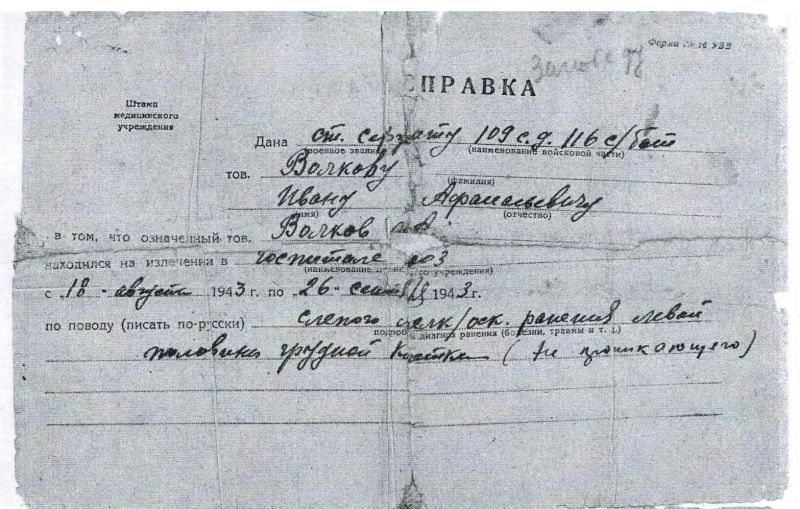 Форма № 16 УВВ
СПРАВКА
Штамп
медицинского
учреждения
Дана ст. сержанту 109 с.д. 116 с/бат
(военное звание) (наименование войсковой части)
тов. Волкову
(фамилия)
Ивану Афанасьевичу
(имя) (отчество)
в том, что означенный тов. Волков
находился на излечении в госпитале
(наименование учреждения)
с 18 августа 1943 г. по 26 сент 1943 г.
по поводу (писать по-русски) слепого мелк/оск. ранения левой
диагноз ранения (болезни, травмы и т. д.)
половины грудной клетки (не проникающего)